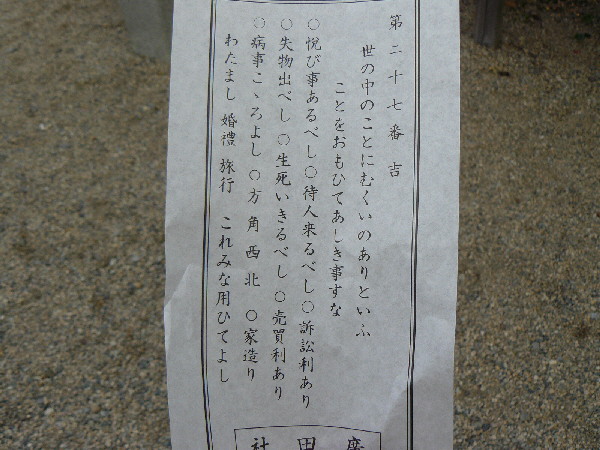 第二十七番吉
世の中のことにむくいのありといふ
ことをおもひてあしき事すな
○悦び事あるべし○待人来るべし○訴訟利あり
○失物出べし○生死いきるべし○売買利あり
○病事こゝろよし○方角西北○家造り
わたまし 婚禮 旅行 これみな用ひてよし
田社